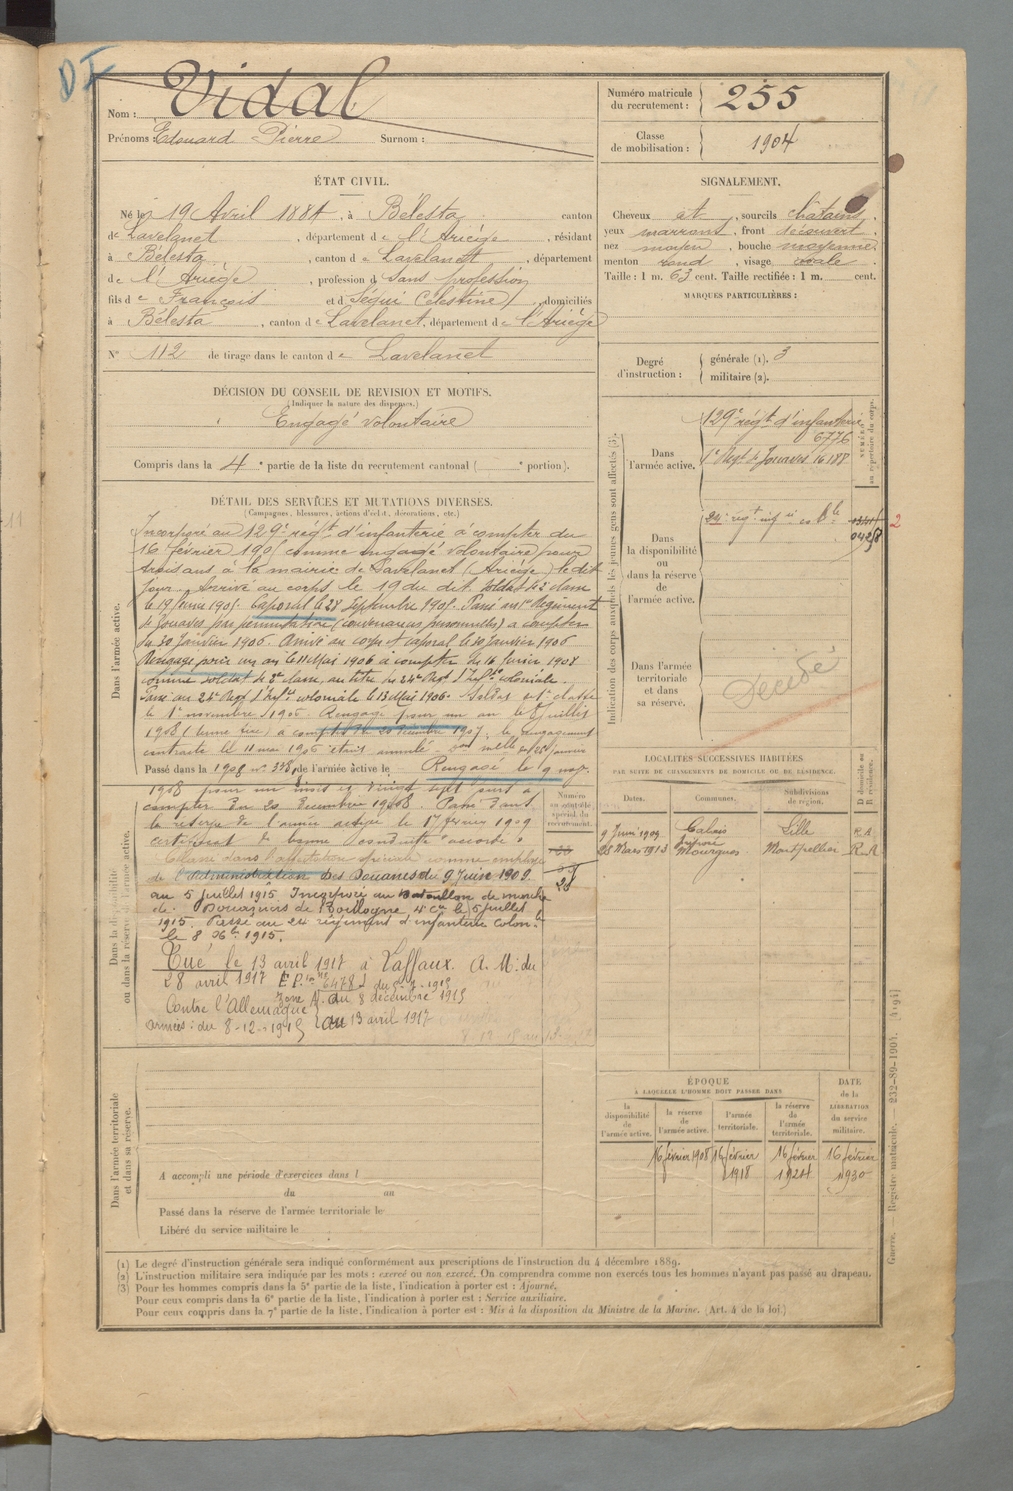 DI
Nom : Vidal
Prénoms : Edouard Pierre Surnom :
Numéro matricule du recrutement : 255
Classe de mobilisation : 1904
ÉTAT CIVIL.
Né le 19 Avril 1884, à Bélesta canton
de Lavelanet, département de l'Ariège, résidant
à Bélesta, canton de Lavelanet, département
de l'Ariège, profession d sans profession
fils de François et d Ségui Célestine, domiciliés
à Bélesta, canton de Lavelanet, département de l'Ariège
N° 112 de tirage dans le canton de Lavelanet
SIGNALEMENT.
Cheveux ât, sourcils châtains.
yeux marrons, front découvert
nez moyen, bouche moyenne
menton rond, visage ovale
Taille : 1 m. 63 cent. Taille rectifiée : 1 m. cent.
MARQUES PARTICULIÈRES :
Degré d'instruction : générale (1). 3
militaire (2).
DÉCISION DU CONSEIL DE REVISION ET MOTIFS.
(Indiquer la nature des dispenses.)
Engagé volontaire
Compris dans la 4e partie de la liste du recrutement cantonal ( e portion).
DÉTAIL DES SERVICES ET MUTATIONS DIVERSES.
(Campagnes, blessures, actions d'éclat, décorations, etc.)
Dans l'armée active.
Incorporé au 129e régt d'infanterie à compter du
16 février 190 comme engagé volontaire pour
trois ans à la mairie de Lavelanet (Ariège) le dit
jour. Arrivé au corps le 19 du dit. Soldat de 2 classe
le 19 février 1905. Caporal le 28 Septembre 1905. Passé au 1er Régiment
de Zouaves par permutation (convenances personnelles) à compter
du 30 Janvier 1906. Arrivé au corps et caporal le 30 Janvier 1906
Rengagé pour un an le 11 Mai 1906 à compter du 16 février 1908
comme soldat de 2e classe, au titre du 24e Régt d'Infie coloniale.
Passé au 24e Régt d'Infie coloniale le 13 Mai 1906. Soldat de 1e classe
le 1er novembre 1906. Rengagé pour un an le 8 juillet
1908 à compter du 20 décembre 1907, le rengagement
contracté le 11 mai 1906 étant annulé
Passé dans la de l'armée active le Rengagé le 9 nov.
1908 pour un mois et vingt sept jours à
compter du 20 Décembre 1908. Passé dans
la réserve de l'armée active le 17 février 1909
certificat de bonne conduite "accordé"
Classé dans l'affectation spéciale comme employé
de l'administration des Douanes du 9 Juin 1909
au 5 juillet 1915 Incorporé au bataillon de marche
de Douaniers de Boulogne 4e Cie le 5 juillet
1915. Passé au 24 régiment d'infanterie colonle
le 8 Xbre 1915.
Tué le 13 avril 1917 à Laffaux. A. M. du
28 avril 1917
Contre l'Allemagne
zone A. du 8 décembre 1915
au 13 avril 1917
armées : du 8-12-1915
Dans la disponibilité ou dans la réserve de l'armée active.
Numéro au contrôle spécial du recrutement.
Indication des corps auxquels les jeunes gens sont affectés (3).
NUMÉRO au répertoire du corps.
Dans l'armée active.
129e régt d'infanterie 6776
1er Régt de Zouaves 16188
Dans la disponibilité ou dans la réserve de l'armée active.
24e régt infie colle
2
Dans l'armée territoriale et dans sa réserve.
Décédé
LOCALITÉS SUCCESSIVES HABITÉES
PAR SUITE DE CHANGEMENTS DE DOMICILE OU DE RÉSIDENCE.
Dates. Communes. Subdivisions de région. D domicile ou R résidence.
9 Juin 1909 Calais Lille R.A
28 Mars 1913 Mourgues Montpellier R.A
ÉPOQUE
À LAQUELLE L'HOMME DOIT PASSER DANS
la disponibilité de l'armée active.
la réserve de l'armée active.
l'armée territoriale.
la réserve de l'armée territoriale.
DATE de la LIBÉRATION du service militaire.
16 février 1908
16 février 1918
16 février 1924
16 février 1930
Dans l'armée territoriale et dans sa réserve.
A accompli une période d'exercices dans l
du au
Passé dans la réserve de l'armée territoriale le
Libéré du service militaire le
(1) Le degré d'instruction générale sera indiqué conformément aux prescriptions de l'instruction du 4 décembre 1889.
(2) L'instruction militaire sera indiquée par les mots : exercé ou non exercé. On comprendra comme non exercés tous les hommes n'ayant pas passé au drapeau.
(3) Pour les hommes compris dans la 5e partie de la liste, l'indication à porter est : Ajourné.
Pour ceux compris dans la 6e partie de la liste, l'indication à porter est : Service auxiliaire.
Pour ceux compris dans la 7e partie de la liste, l'indication à porter est : Mis à la disposition du Ministre de la Marine. (Art. 4 de la loi.)
Guerre. — Registre matricule. — 232-89-1904. [4194]